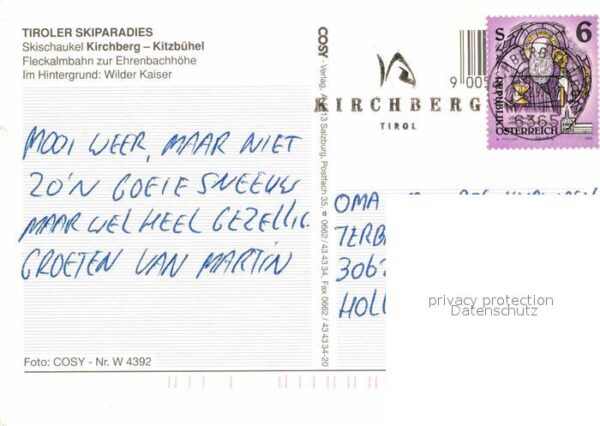 TIROLER SKIPARADIES
Skischaukel Kirchberg – Kitzbühel
Fleckalmbahn zur Ehrenbachhöhe
Im Hintergrund: Wilder Kaiser
MOOI WEER, MAAR NIET
ZO'N GOEIE SNEEUW
MAAR WEL HEEL GEZELLIG
GROETEN VAN MARTIN
Foto: COSY - Nr. W 4392
COSY - Verlag, A-5013 Salzburg, Postfach 35, ☎ 0662/43 43 34, Fax 0662/43 43 34-20
KIRCHBERG
TIROL
S 6
REPUBLIK
ÖSTERREICH
6365
OMA
TERB
306
HOLL
privacy protection
Datenschutz